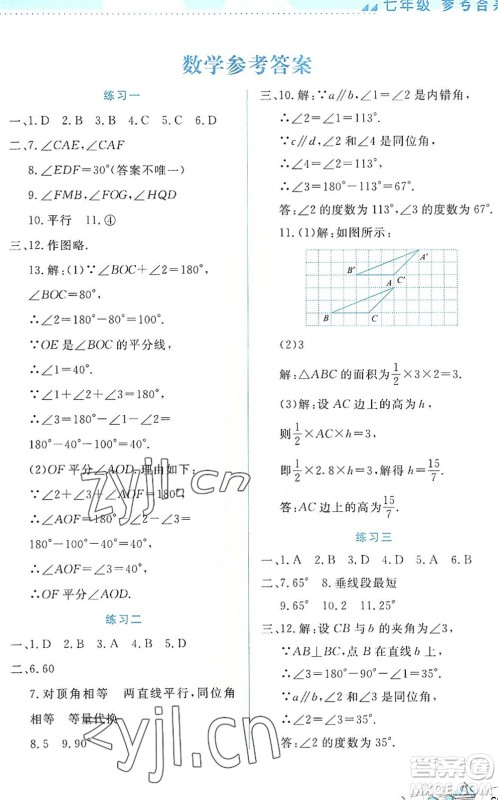 七年级 参考答案
数学参考答案
练习一
一、1.D 2.B 3.B 4.C 5.D 6.D
二、7.∠CAE,∠CAF
8.∠EDF=30°(答案不唯一)
9.∠FMB,∠FOG,∠HQD
10.平行 11.④
三、12.作图略.
13.解:(1)∵∠BOC+∠2=180°,
∠BOC=80°,
∴∠2=180°-80°=100°.
∵OE是∠BOC的平分线,
∴∠1=40°.
∵∠1+∠2+∠3=180°,
∴∠3=180°-∠1-∠2=
180°-40°-100°=40°.
(2)OF平分∠AOD.理由如下:
∵∠2+∠3+∠AOF=180°,
∴∠AOF=180°-∠2-∠3=
180°-100°-40°=40°.
∴∠AOF=∠3=40°.
∴OF平分∠AOD.
练习二
一、1.D 2.B 3.A 4.B 5.D
二、6.60
7.对顶角相等 两直线平行,同位角
相等 等量代换
8.5 9.90°
三、10.解:∵a∥b,∠1与∠2是内错角,
∴∠2=∠1=113°.
∵c∥d,∠2与∠4是同位角,
∴∠4=∠2=113°.
∴∠3=180°-113°=67°.
答:∠2的度数为113°,∠3的度数为67°.
11.(1)解:如图所示:
A′
B′
A
C′
B
C
(2)3
解:△ABC的面积为1/2×3×2=3.
(3)解:设AC边上的高为h,
则1/2×AC×h=3,
即1/2×2.8×h=3,解得h=15/7.
答:AC边上的高为15/7.
练习三
一、1.A 2.D 3.D 4.A 5.A 6.B
二、7.65° 8.垂线段最短
9.65° 10.2 11.25°
三、12.解:设CB与b的夹角为∠3,
∵AB⊥BC,点B在直线b上,
∠1=55°,
∴∠3=180°-90°-∠1=35°.
∵a∥b,
∴∠2=∠3=35°.
答:∠2的度数为35°.
zyjl.cn
zyjl.cn
答案圈
MXQE.COM